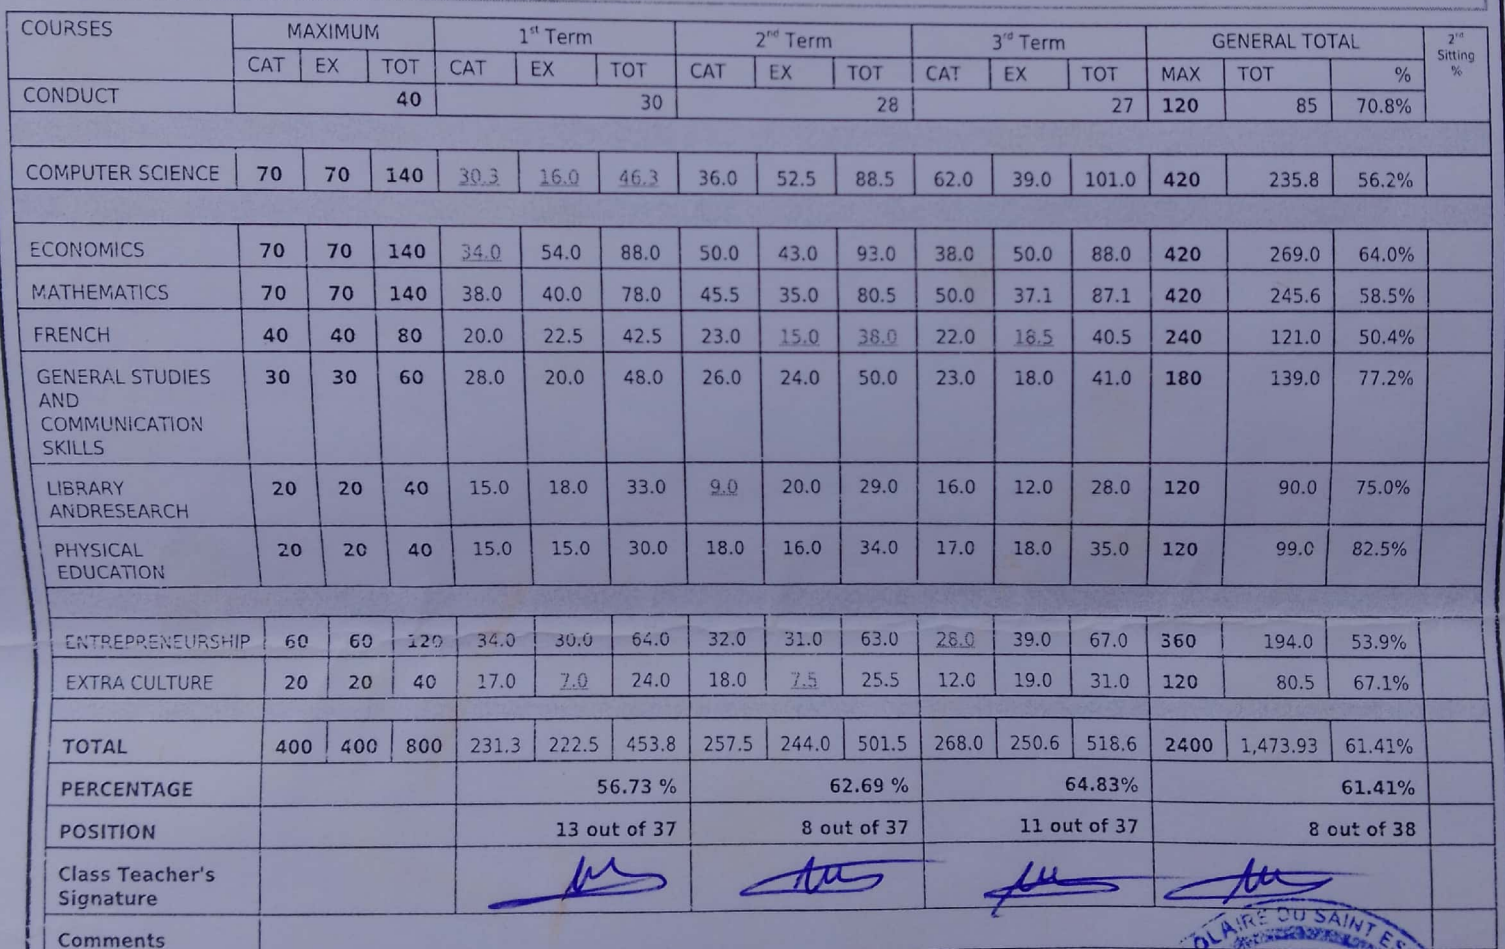 COURSES MAXIMUM 1st Term 2nd Term 3rd Term GENERAL TOTAL 2nd Sitting %
CAT EX TOT CAT EX TOT CAT EX TOT CAT EX TOT MAX TOT %
CONDUCT 40 30 28 27 120 85 70.8%
COMPUTER SCIENCE 70 70 140 30.3 16.0 46.3 36.0 52.5 88.5 62.0 39.0 101.0 420 235.8 56.2%
ECONOMICS 70 70 140 34.0 54.0 88.0 50.0 43.0 93.0 38.0 50.0 88.0 420 269.0 64.0%
MATHEMATICS 70 70 140 38.0 40.0 78.0 45.5 35.0 80.5 50.0 37.1 87.1 420 245.6 58.5%
FRENCH 40 40 80 20.0 22.5 42.5 23.0 15.0 38.0 22.0 18.5 40.5 240 121.0 50.4%
GENERAL STUDIES 30 30 60 28.0 20.0 48.0 26.0 24.0 50.0 23.0 18.0 41.0 180 139.0 77.2%
AND
COMMUNICATION
SKILLS
LIBRARY 20 20 40 15.0 18.0 33.0 9.0 20.0 29.0 16.0 12.0 28.0 120 90.0 75.0%
ANDRESEARCH
PHYSICAL 20 20 40 15.0 15.0 30.0 18.0 16.0 34.0 17.0 18.0 35.0 120 99.0 82.5%
EDUCATION
ENTREPRENEURSHIP 60 60 120 34.0 30.0 64.0 32.0 31.0 63.0 28.0 39.0 67.0 360 194.0 53.9%
EXTRA CULTURE 20 20 40 17.0 7.0 24.0 18.0 7.5 25.5 12.0 19.0 31.0 120 80.5 67.1%
TOTAL 400 400 800 231.3 222.5 453.8 257.5 244.0 501.5 268.0 250.6 518.6 2400 1,473.93 61.41%
PERCENTAGE 56.73 % 62.69 % 64.83% 61.41%
POSITION 13 out of 37 8 out of 37 11 out of 37 8 out of 38
Class Teacher's
Signature
Comments
OLAIRE DU SAINT ES